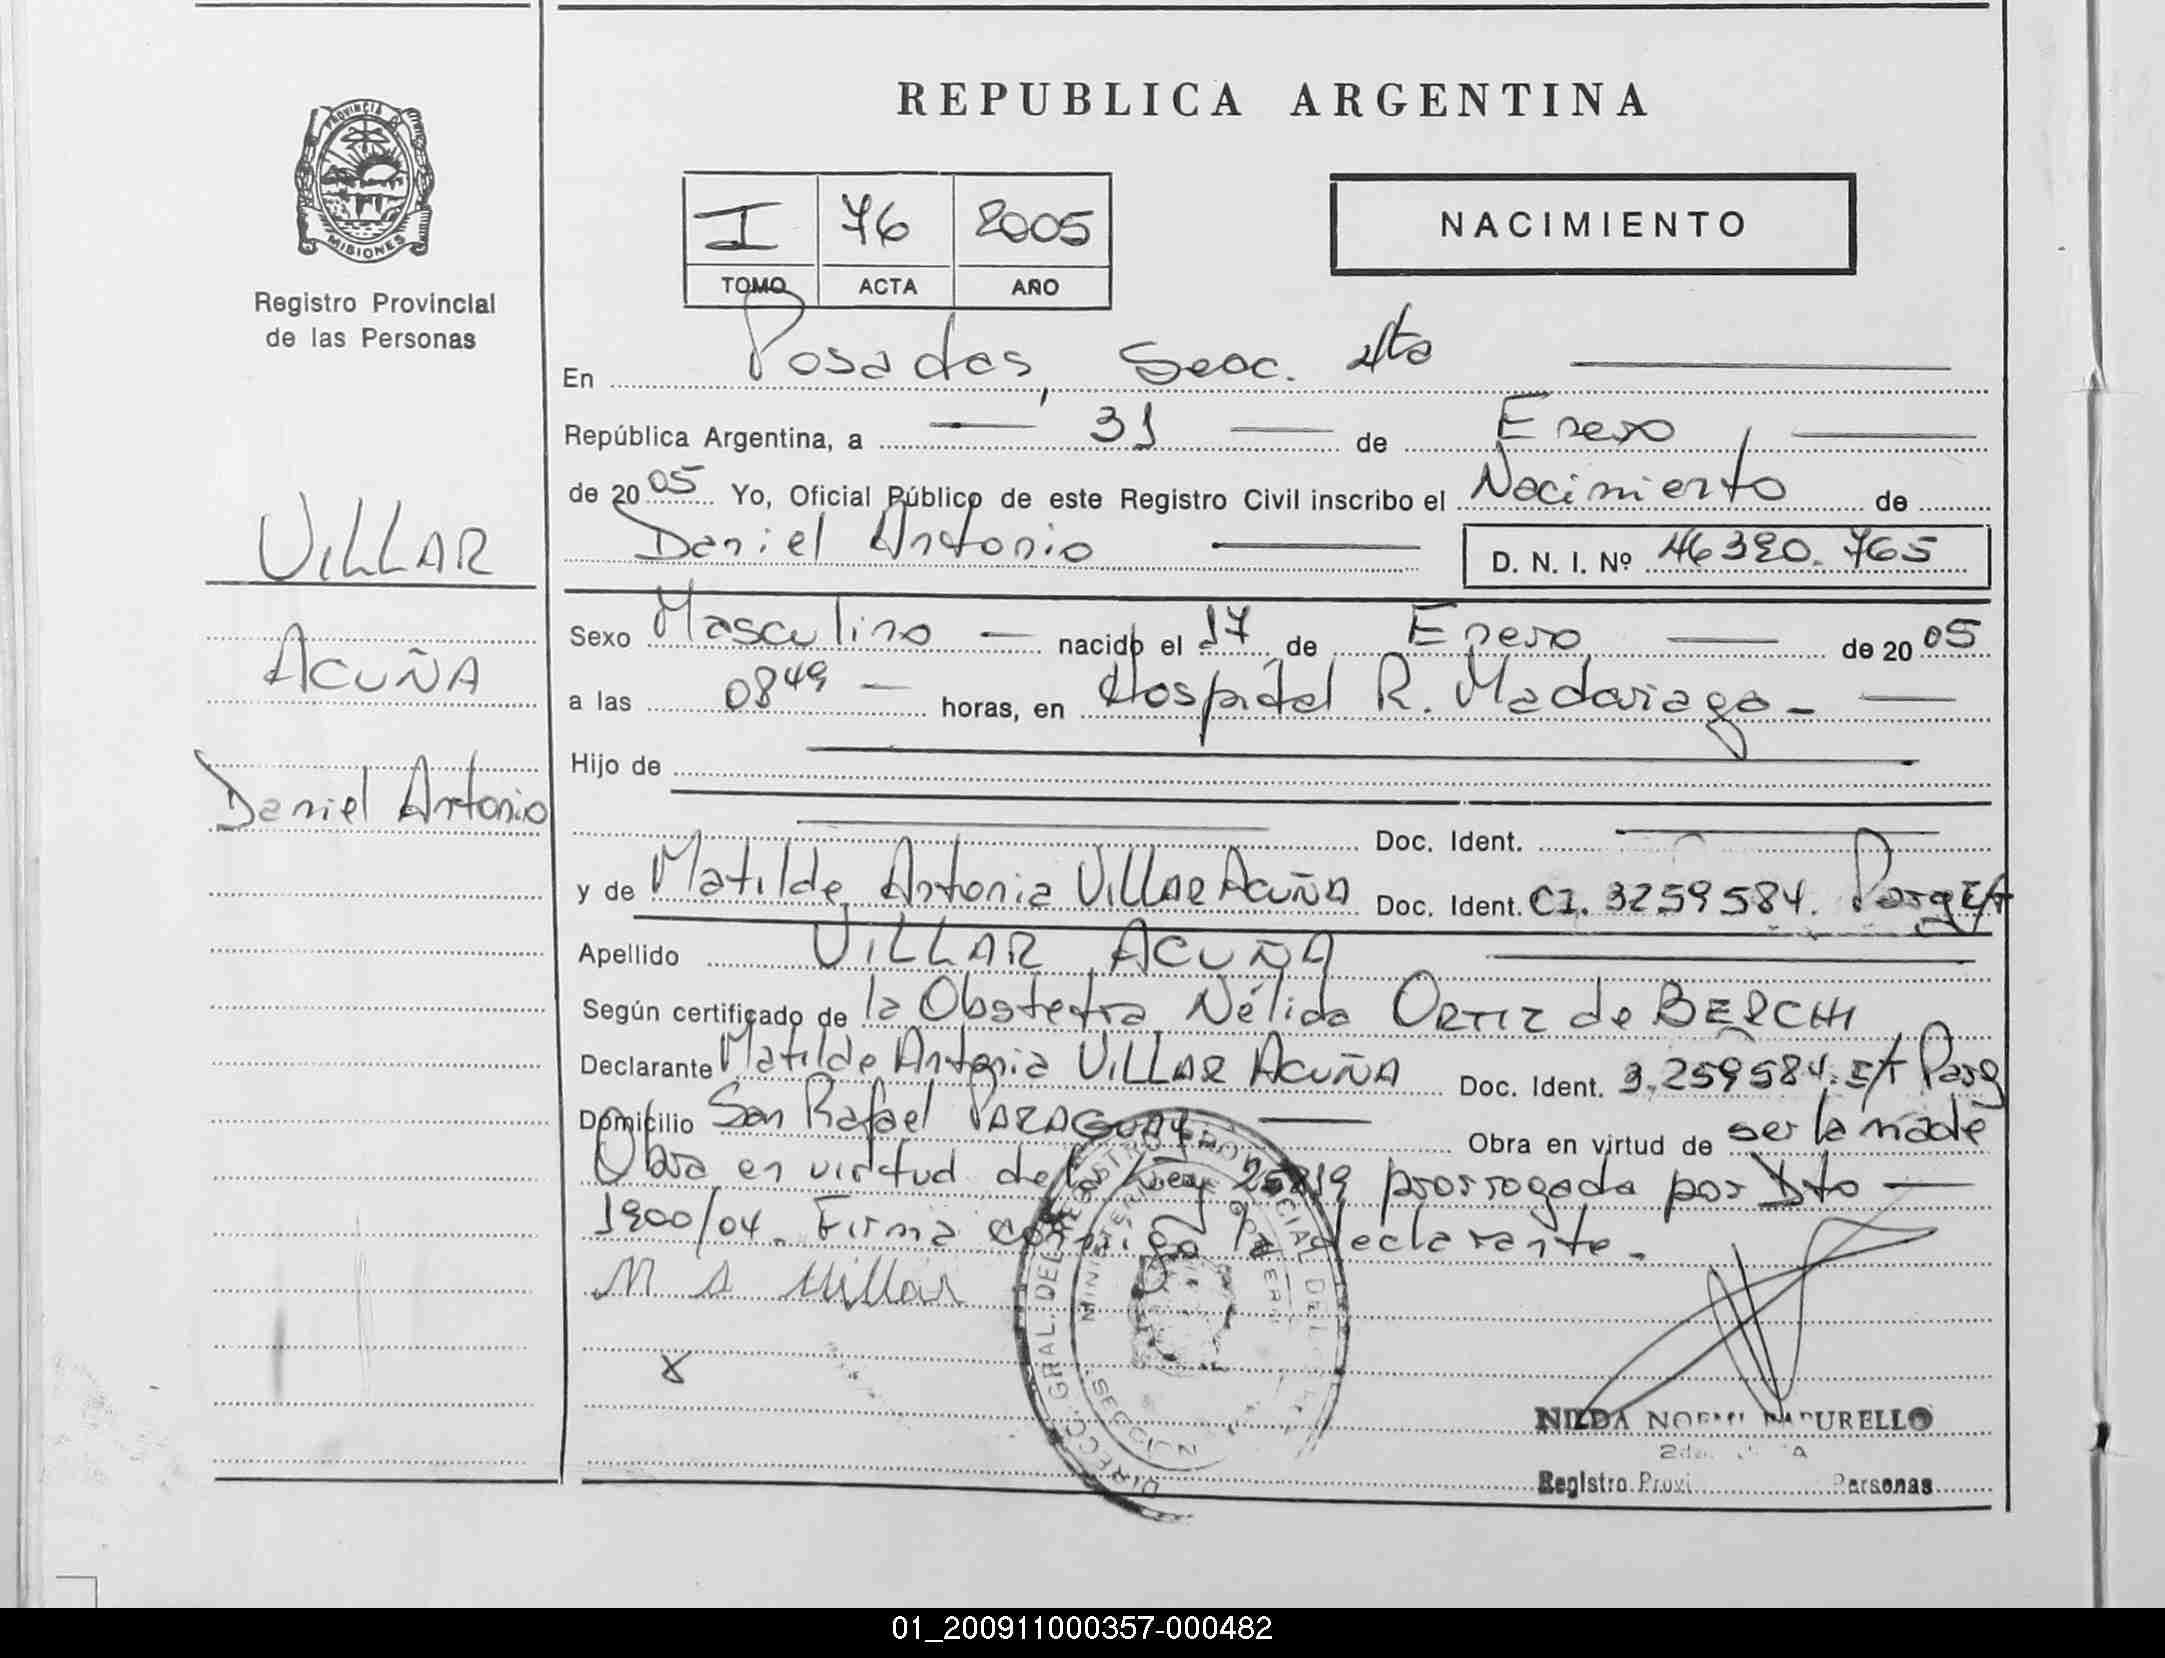 REPUBLICA ARGENTINA
PROVINCIA DE
MISIONES
Registro Provincial
de las Personas
I 76 2005
TOMO ACTA AÑO
NACIMIENTO
En Posadas, Secc. 4ta
República Argentina, a 31 de Enero
de 2005 Yo, Oficial Público de este Registro Civil inscribo el Nacimiento de
Daniel Antonio D. N. I. Nº 46390.765
VILLAR
ACUÑA
Daniel Antonio
Sexo Masculino nacido el 17 de Enero de 2005
a las 0849 horas, en Hospital R. Madariaga -
Hijo de
Doc. Ident.
y de Matilde Antonia VILLAR ACUÑA Doc. Ident. CI. 3259584. Parg
Apellido VILLAR ACUÑA
Según certificado de la Obstetra Nélida ORTIZ de BERCHI
Declarante Matilde Antonia VILLAR ACUÑA Doc. Ident. 3.259584. Parg
Domicilio San Rafael PARAGUAY Obra en virtud de ser la madre
Obra en virtud de la Ley 25819 prorrogada por Dto
1900/04. Firma conmigo la declarante.
M A Villar
x
DIRECC. GRAL. DEL REGISTRO PROVINCIAL DE
MINISTERIO DE GOBIERNO
SECCION
NILDA NOEMI
Registro Personas
01_200911000357-000482